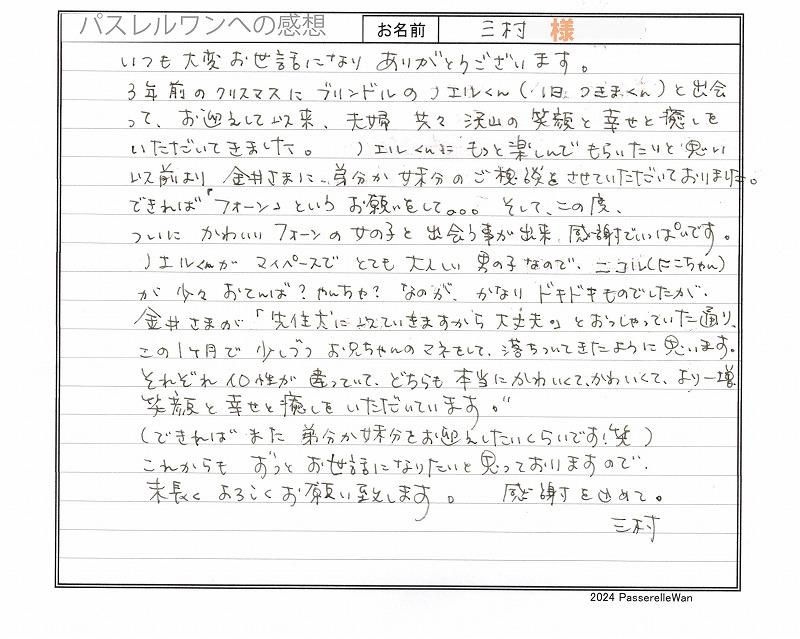 パスレルワンへの感想 お名前 三村 様
いつも大変お世話になり ありがとうございます。
3年前のクリスマスに ブリンドルの ノエルくん(旧 つきまくん)と出会
って、お迎えして以来、夫婦 共々 沢山の笑顔と幸せと癒しを
いただいてきました。 ノエルくんに もっと楽しんで もらいたいと思い
以前より 金井さまに、弟分か妹分のご相談をさせていただいておりました。
できれば「フォーン」という お願いをして。。。 そして、この度、
ついに かわいい フォーンの女の子と 出会う事が出来、感謝でいっぱいです。
ノエルくんが マイペースで とても 大人しい 男の子なので、ニコル(にこちゃん)
が 少々 おてんば?やんちゃ? なのが、かなり ドキドキものでしたが、
金井さまが「先住犬に似ていきますから 大丈夫。」とおっしゃっていた通り、
この1ヶ月で 少しづつ お兄ちゃんの マネをして、落ちついてきたように思います。
それぞれ 個性が 違っていて、どちらも 本当にかわいくて、かわいくて、より一増
笑顔と幸せと癒しを いただいています。"
(できれば また 弟分か妹分をお迎えしたいくらいです!笑)
これからも ずっと お世話になりたいと思っておりますので、
末長く よろしくお願い致します。 感謝を込めて。
三村
2024 PasserelleWan